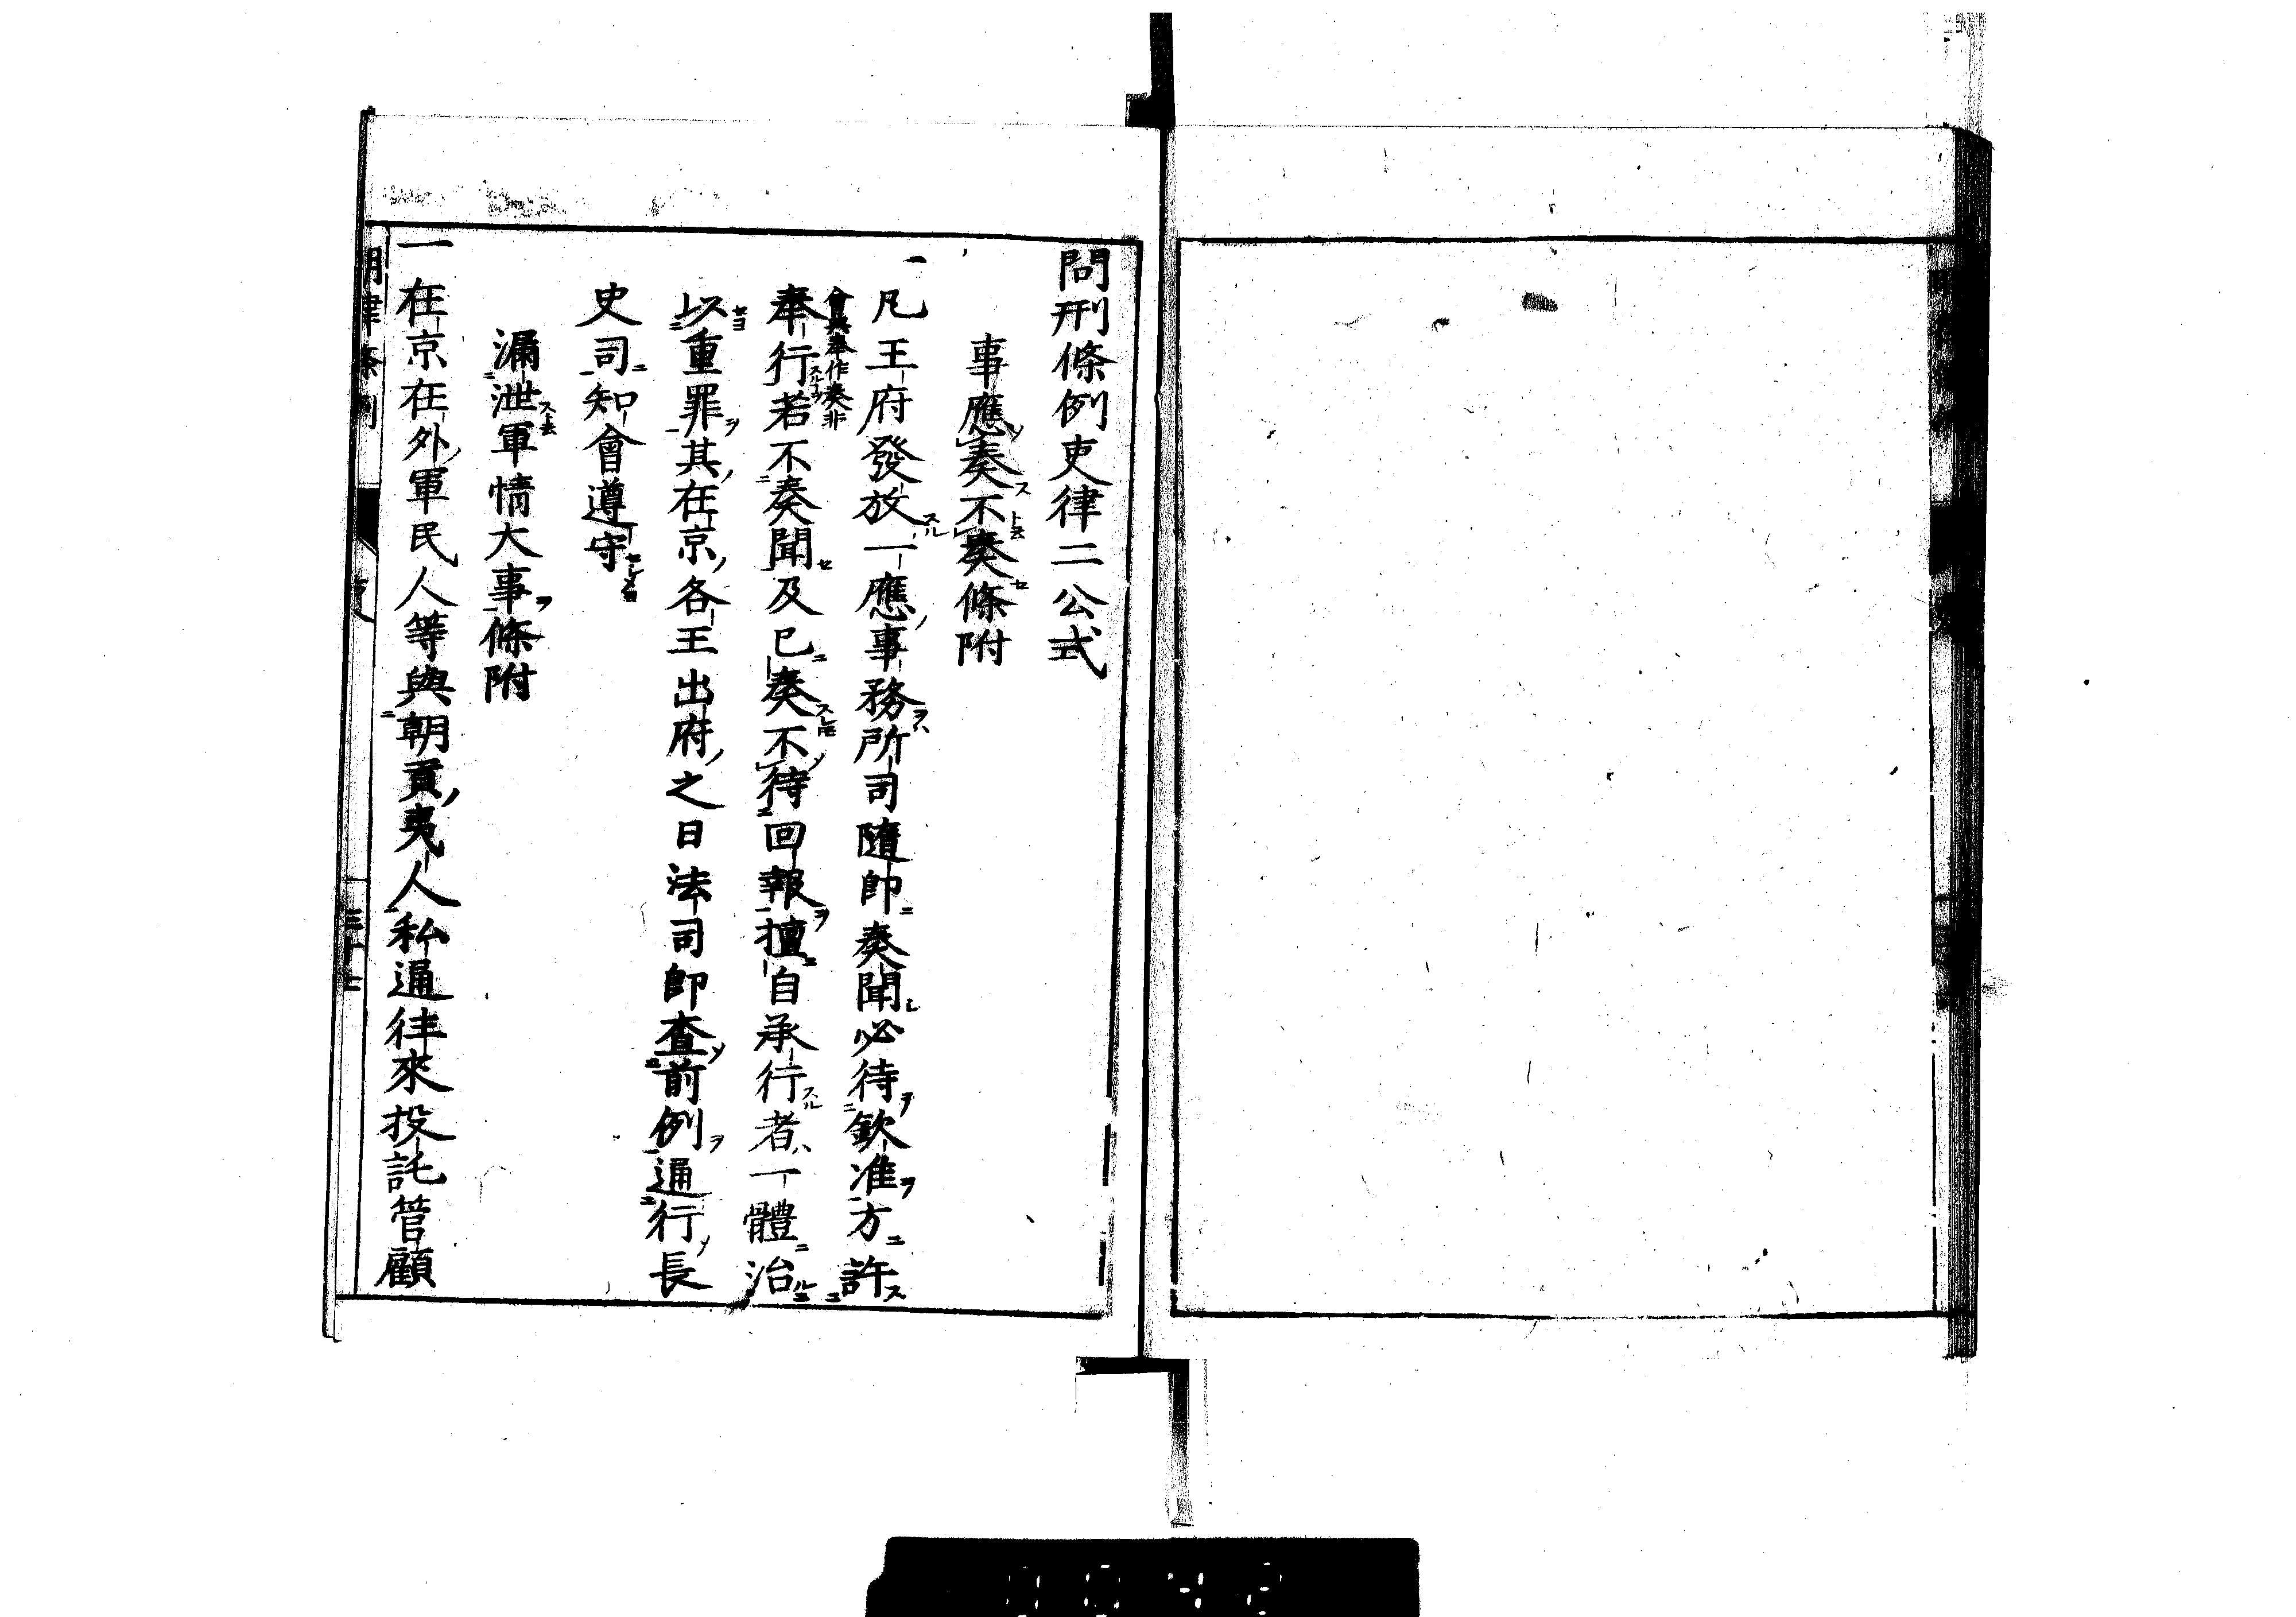 問刑條例吏律二公式
事應奏不奏條附
一凡王府發放一應事務所司隨即奏聞必待欽准方許
會典奉作奏非
奉行若不奏聞及已奏不待回報擅自承行者一體治
以重罪其在京各王出府之日法司即查前例通行長
史司知會遵守
漏泄軍情大事條附
一在京在外軍民人等與朝貢夷人私通往來投託管顧